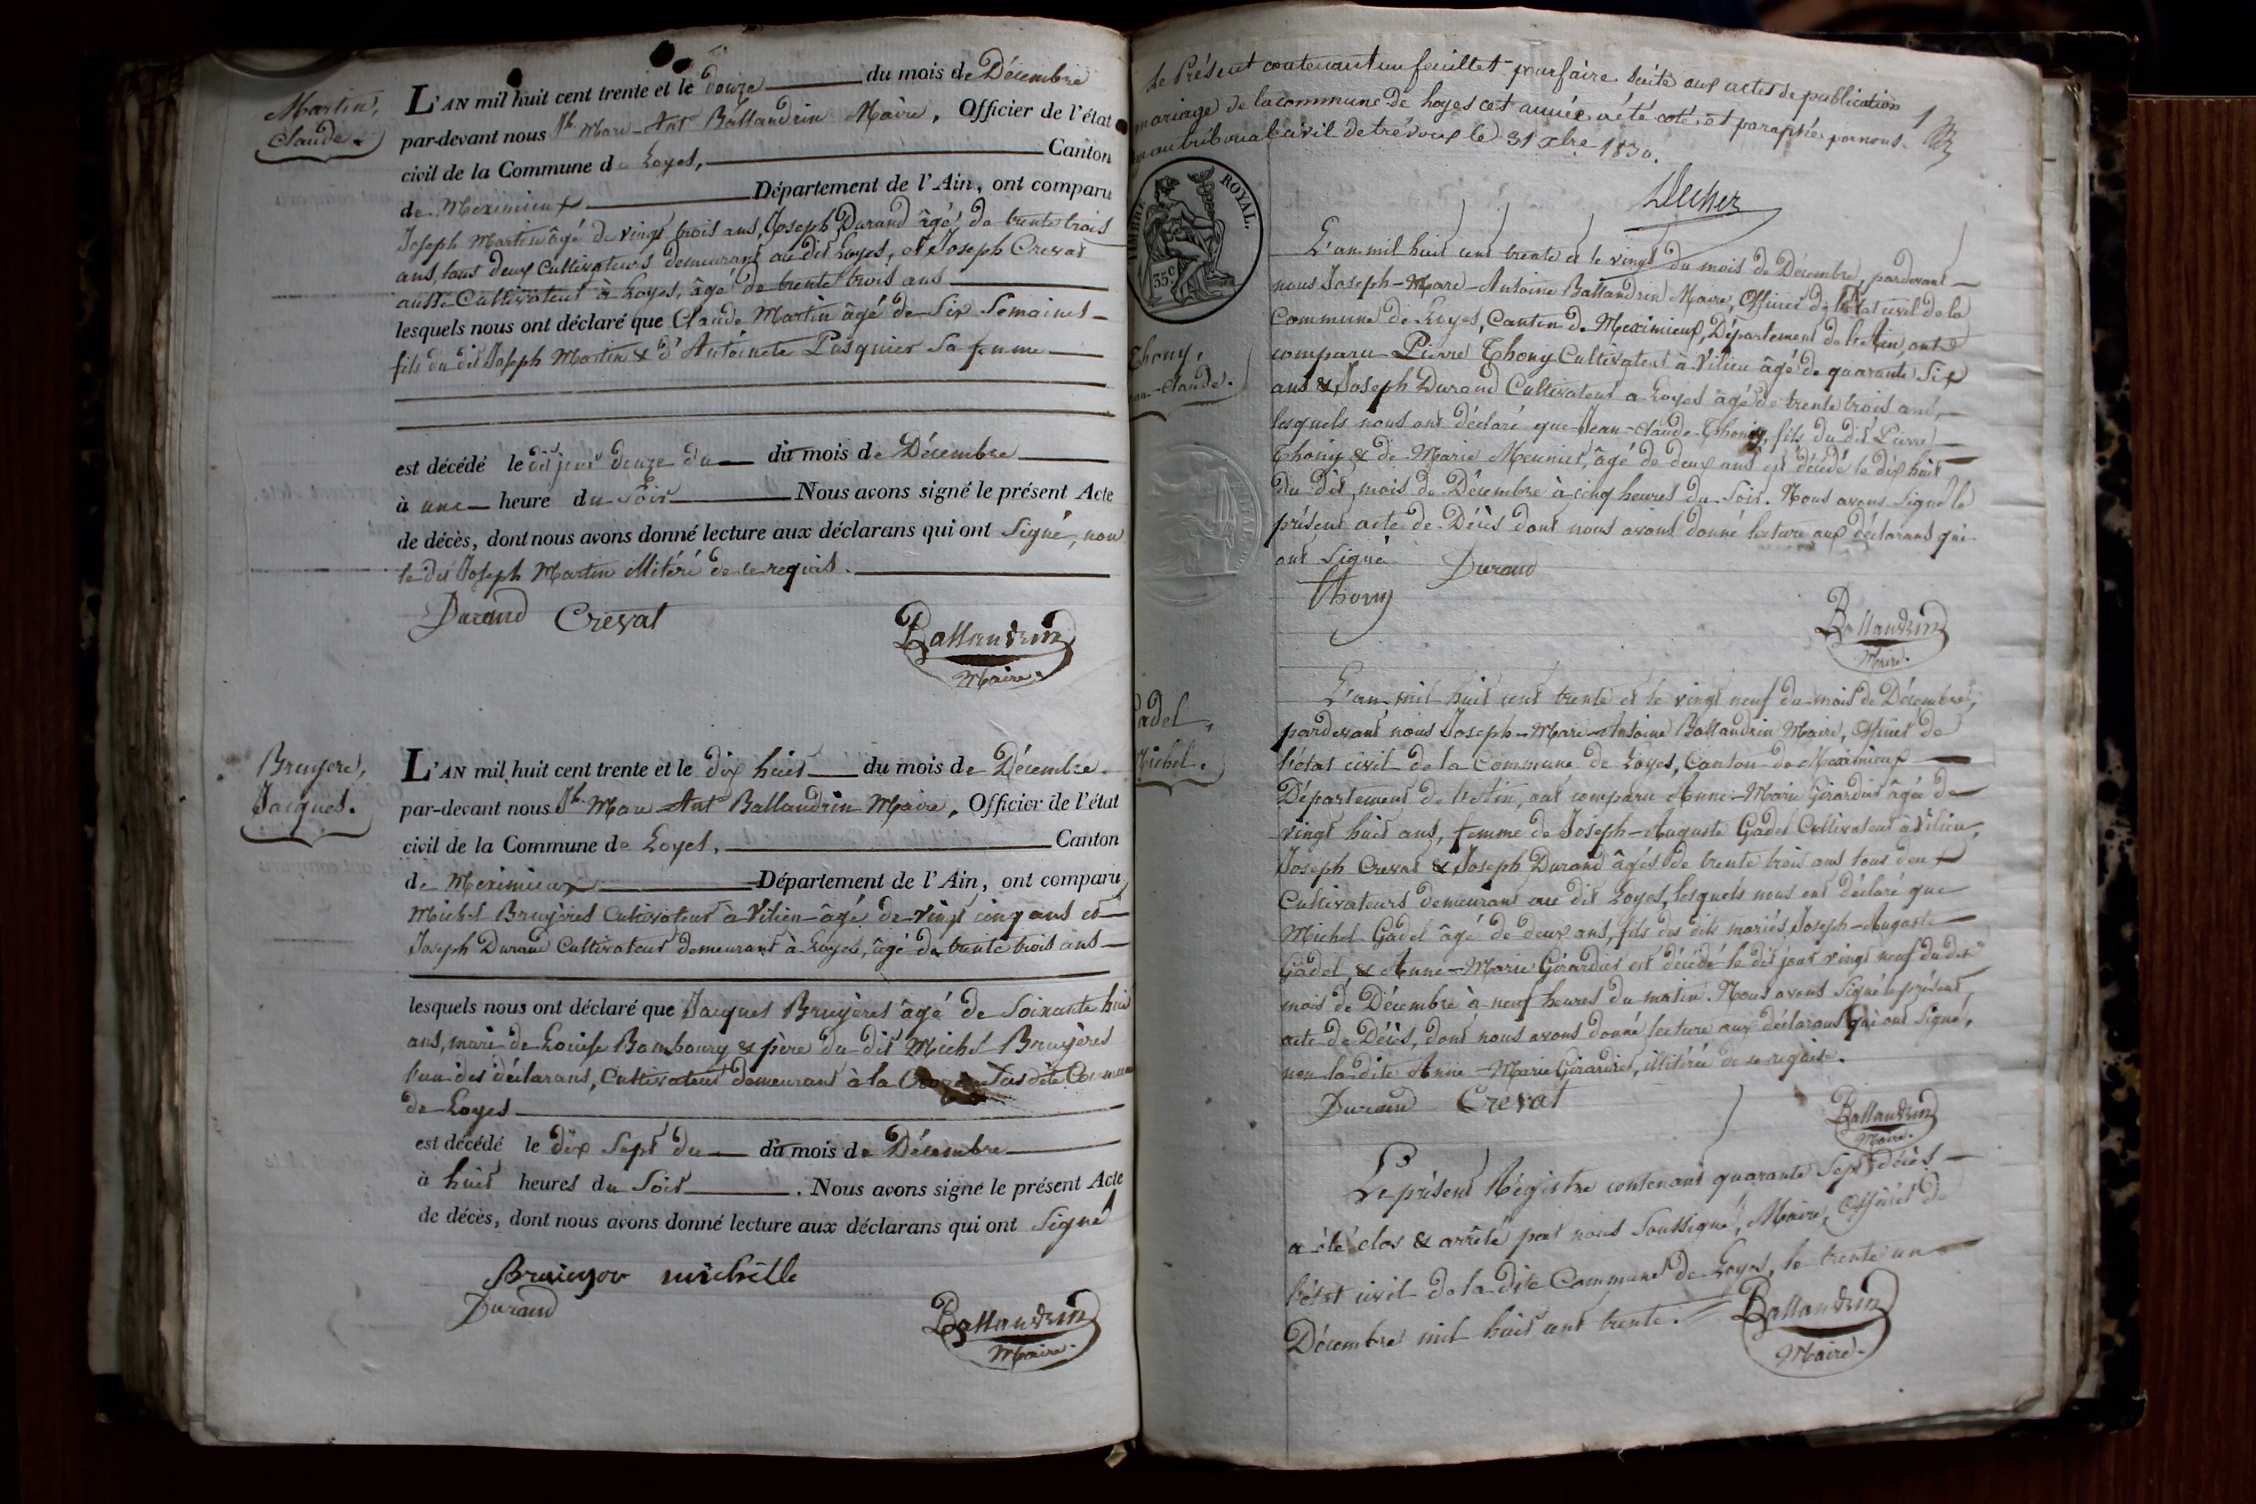 Martin,
Claude.
L'AN mil huit cent trente et le douze du mois de Décembre
par-devant nous Jh Marc-Ant Ballandrin Maire, Officier de l'état
civil de la Commune de Loyes, Canton
de Meximieux Département de l'Ain, ont comparu
Joseph Martin âgé de vingt trois ans, Joseph Durand âgé de trente trois
ans, tous deux Cultivateurs demeurant au dit Loyes, et Joseph Creval
aussi Cultivateur à Loyes, âgé de trente trois ans
lesquels nous ont déclaré que Claude Martin âgé de Six Semaines
fils du dit Joseph Martin & d'Antoinete Pasquier sa femme
est décédé le dit jour douze du du mois de Décembre
à une heure du Soir Nous avons signé le présent Acte
de décès, dont nous avons donné lecture aux déclarans qui ont Signé, non
le dit Joseph Martin illitéré de ce requis.
Durand Creval
Ballandrin
Maire.
Bruyere,
Jacques.
L'AN mil huit cent trente et le dix huit du mois de Décembre
par-devant nous Jh Marc-Ant Ballandrin Maire, Officier de l'état
civil de la Commune de Loyes, Canton
de Meximieux Département de l'Ain, ont comparu
Michel Bruyères Cultivateur à Vilieu âgé de vingt cinq ans et
Joseph Durand Cultivateur demeurant à Loyes, âgé de trente trois ans
lesquels nous ont déclaré que Jacques Bruyères âgé de Soixante huit
ans, mari de Louise Bombourg & père du dit Michel Bruyères
l'un des déclarans, Cultivateur demeurant à la dite Commune
de Loyes
est décédé le dix Sept du du mois de Décembre
à huit heures du Soir. Nous avons signé le présent Acte
de décès, dont nous avons donné lecture aux déclarans qui ont Signé
Bruieyor michelle
Durand
Ballandrin
Maire.
le Présent contenant un feuillet pour faire suite aux actes de publication
mariage de la commune de loyes cet année a été coté et paraphé par nous 1
au tribunal civil de trévoux le 31 xbre 1830.
TIMBRE ROYAL.
35 c
L'an mil huit cent trente et le vingt du mois de Décembre, pardevant
nous Joseph-Marc-Antoine Ballandrin Maire, Officier de l'état civil de la
Commune de Loyes, Canton de Meximieux, Département de l'Ain, ont
Thony,
Claude.
comparu Pierre Thony Cultivateur à Vilieu âgé de quarante Six
ans & Joseph Durand Cultivateur a Loyes âgé de trente trois ans,
lesquels nous ont déclaré que Jean-Claude Thony, fils du dit Pierre
Thony & de Marie Meunier, âgé de deux ans est décédé le dix huit
du dit mois de Décembre à cinq heures du Soir. Nous avons Signé le
présent acte de Décès dont nous avons donné lecture aux déclarans qui
ont Signé
Thony Durand
Ballandrin
Maire.
Gadel,
Michel.
L'an mil huit cent trente et le vingt neuf du mois de Décembre,
pardevant nous Joseph-Marc-Antoine Ballandrin Maire, Officier de
l'état civil de la Commune de Loyes, Canton de Meximieux
Département de l'Ain, ont comparu Anne-Marie Girardier âgée de
vingt huit ans, femme de Joseph-Auguste Gadel Cultivateur à Vilieu,
Joseph Creval & Joseph Durand âgés de trente trois ans tous deux
Cultivateurs demeurant au dit Loyes, lesquels nous ont déclaré que
Michel Gadel âgé de deux ans, fils des dits mariés Joseph-Auguste
Gadel & Anne-Marie Girardier est décédé le dit jour vingt neuf du dit
mois de Décembre à neuf heures du matin. Nous avons Signé le présent
acte de Décès, dont nous avons donné lecture aux déclarans qui ont Signé,
non la dite Anne-Marie Girardier, illitérée de ce requise.
Durand Creval
Ballandrin
Maire.
Le présent Régistre contenant quarante Sept décès
a été clos & arrêté par nous Soussigné, Maire, Officier de
l'état civil de la dite Commune de Loyes, le trente un
Décembre mil huit cent trente.
Ballandrin
Maire.